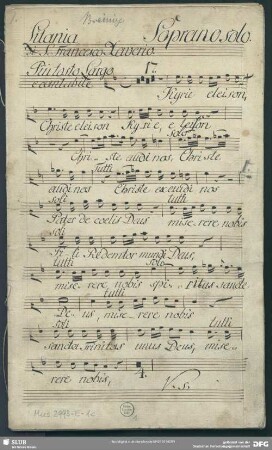 Brixi
Litania Soprano solo
De S. Francesco Xaverio.
Piu tosto Largo
e cantabile
Kyrie eleison,
Christe eleison Kyrie, eleison
solo
Chri - ste audi nos Christe
Tutti
audi nos Christe exaudi nos
soli tutti
Pater de coelis Deus mise, rere, nobis
soli
Fi li Redemtor mundi Deus,
tutti solo
mise, rere, nobis spi - ritus sancte
tutti
De - us, mise, rere, nobis
soli tutti
sancta Trinitas unus Deus, mise,
rere nobis,
V. S.
SLUB
DFG